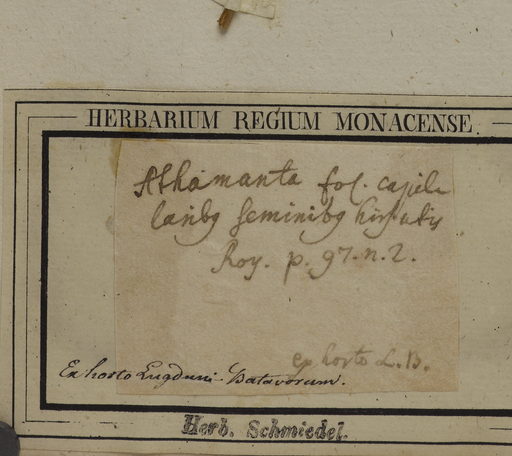 HERBARIUM REGIUM MONACENSE.
Athamanta fol. capil-
laribq seminibq hirsutis
Roy. p. 97. n. 2.
ex horto L. B.
Ex horto Lugduni-Batavorum.
Herb. Schmiedel.